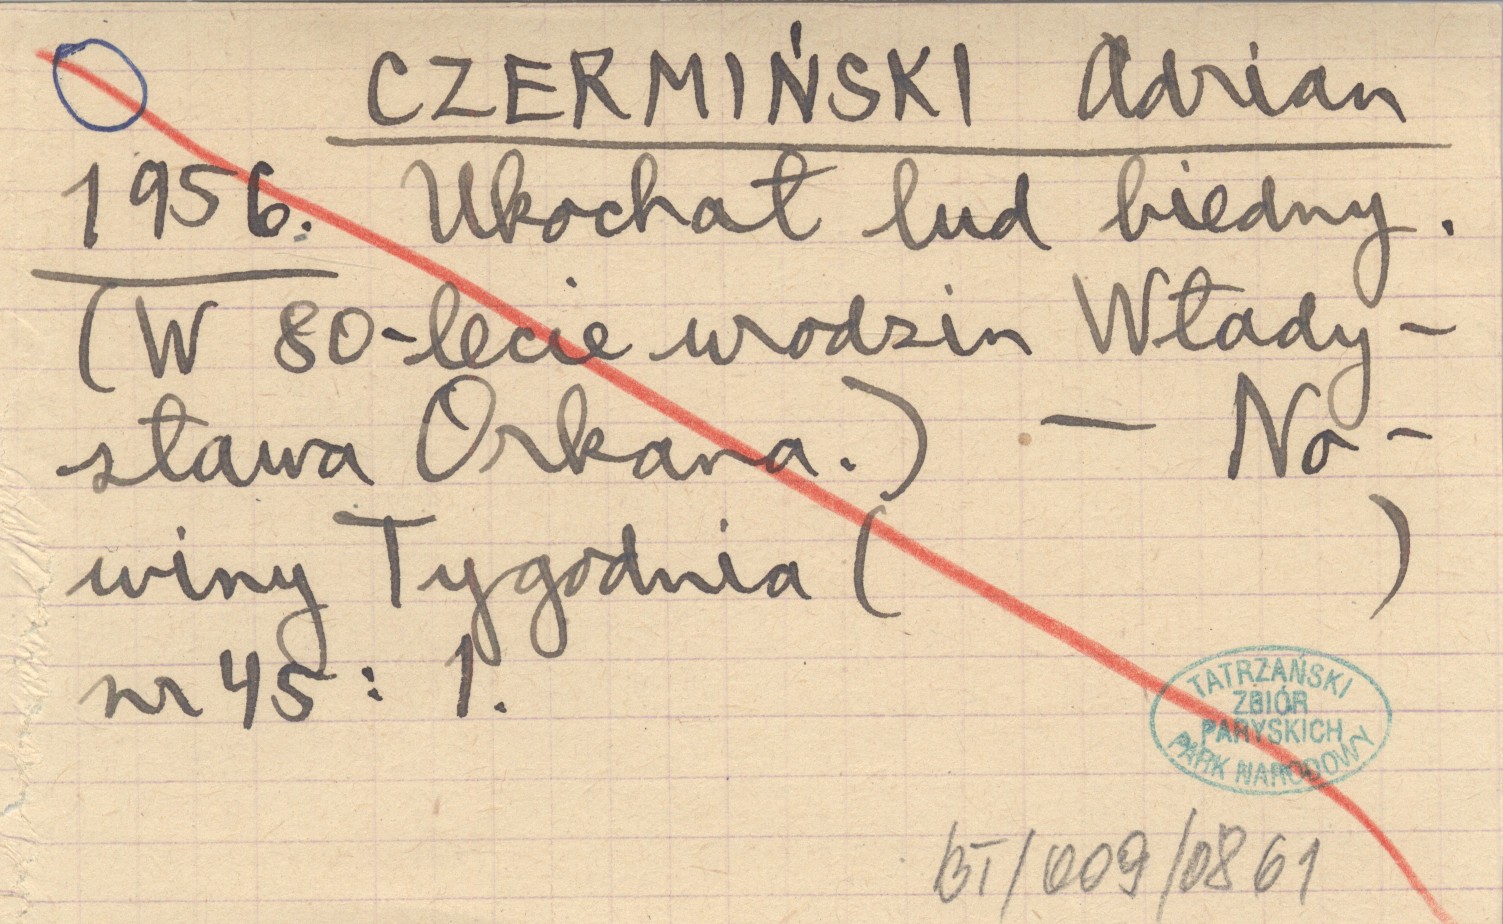 CZERMIŃSKI Adrian
1956. Ukochał lud biedny.
(W 80-lecie urodzin Włady-
sława Orkana.) — No-
winy Tygodnia (          )
nr 45 : 1.
TATRZAŃSKI
ZBIÓR
PARYSKICH
PARK NARODOWY
BT/009/0861